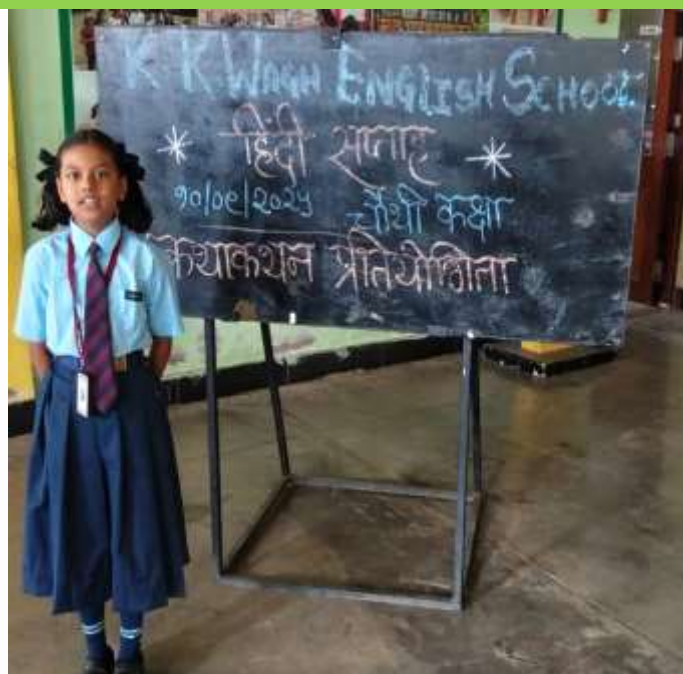 K K WAGH ENGLISH SCHOOL
* हिंदी सप्ताह *
१०/०९/२०२५ चौथी कक्षा
कथाकथन प्रतियोगिता